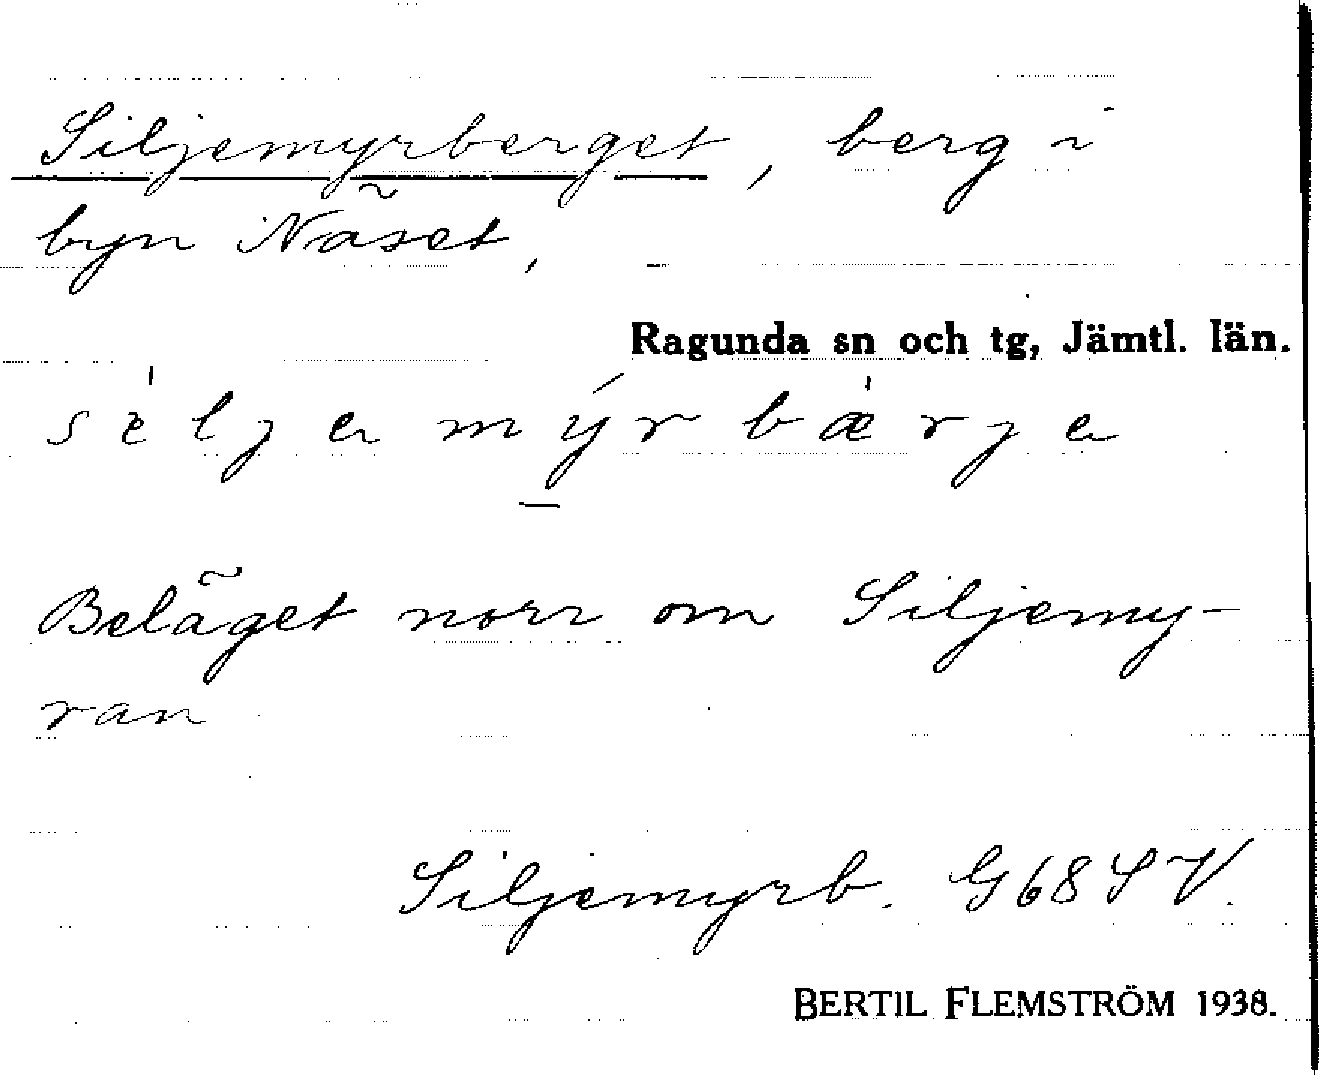 Siljemyrberget, berg i
byn Näset,
Ragunda sn och tg, Jämtl. län.
sèljemýrbærje
Beläget norr om Siljemy-
ran
Siljemyrb. G68SV.
BERTIL FLEMSTRÖM 1938.